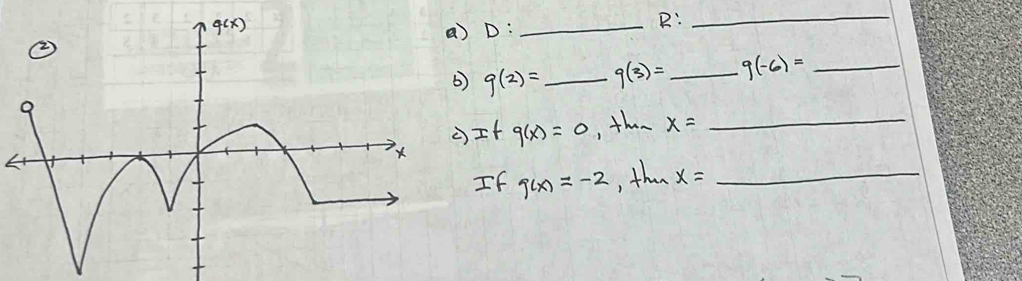 ② g(x) x
a) D: ________ R: ________
b) g(2) = ____ g(3) = ____ g(-6) = ____
c) If g(x) = 0, then x = ________
If g(x) = -2, then x = ________